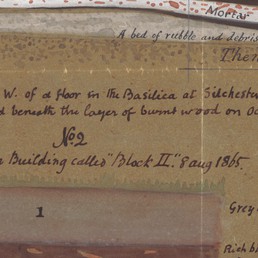 Mortar
A bed of rubble and debris
Then
W. of a floor in the Basilica at Silchester
d beneath the layer of burnt wood on Oc
No 2
Building called "Block II". 8 aug 1865.
1
Grey
Rich bl